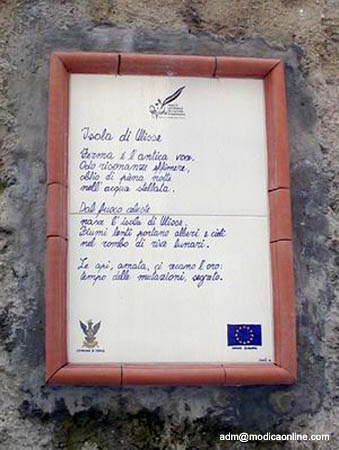 Isola di Ulisse
Ferma è l'antica voce.
Odo risonanze effimere,
oblio di piena notte
nell'acqua stellata.
Dal fuoco celeste
nasce l'isola di Ulisse.
Fiumi lenti portano alberi e cieli
nel rombo di rive lunari.
Le api, amata, ci recano l'oro:
tempo delle mutazioni, segreto.
UNIONE EUROPEA
adm@modicaonline.com